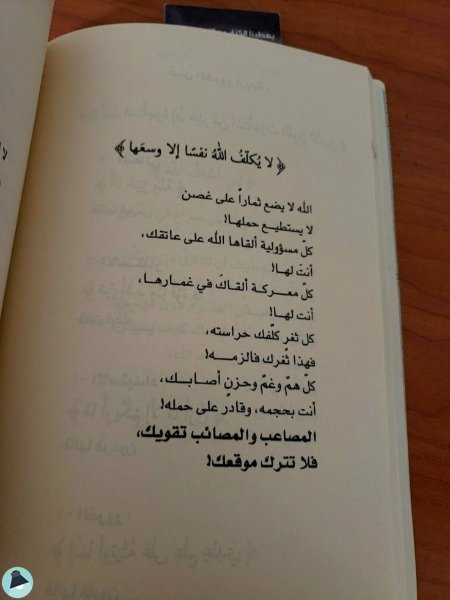 ﴿لا يُكلّفُ اللهُ نفسًا إلا وسعَها﴾
الله لا يضع ثماراً على غصن
لا يستطيع حملها!
كلّ مسؤولية ألقاها الله على عاتقك،
أنتَ لها!
كلّ معركة ألقاكَ في غمارها،
أنت لها!
كل ثغر كلّفك حراسته،
فهذا ثغرك فالزمه!
كلّ همّ وغمّ وحزنٍ أصابك،
أنت بحجمه، وقادر على حمله!
المصاعب والمصائب تقويك،
فلا تترك موقعك!